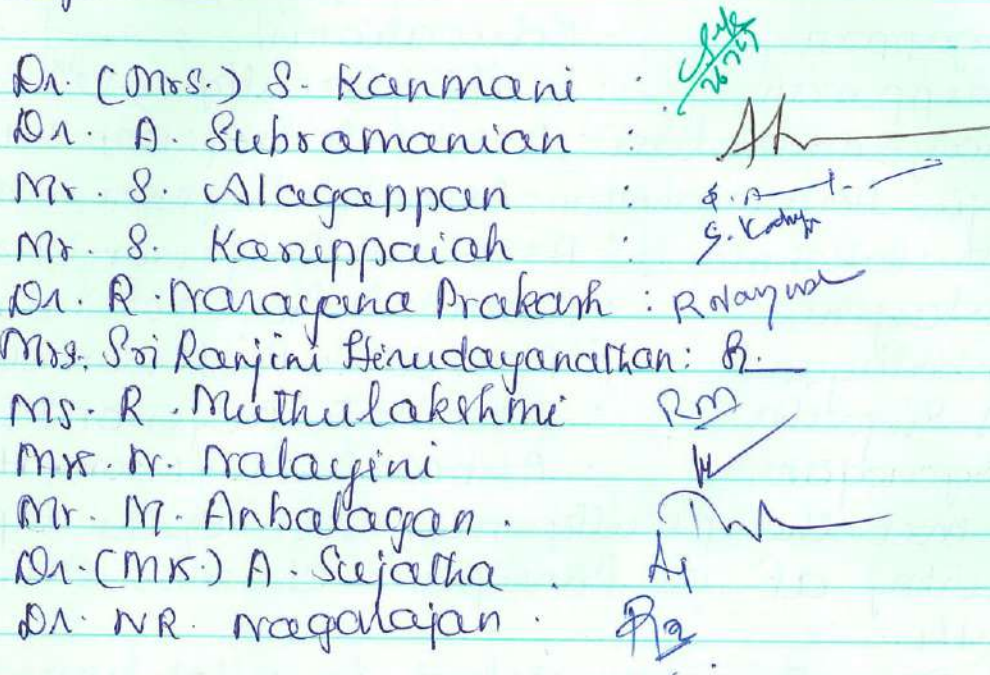 Dr. (Mrs.) S. Kanmani :
Dr. A. Subramanian :
Mr. S. Alagappan :
Mr. S. Karuppaiah : S.
Dr. R. Narayana Prakash :
Mrs. Sri Ranjini Hirudayanathan:
Ms. R. Muthulakshmi RM
Mrs. N. Nalayini
Mr. M. Anbalagan.
Dr. (Mrs.) A. Sujatha .
Dr. NR. Nagarajan .